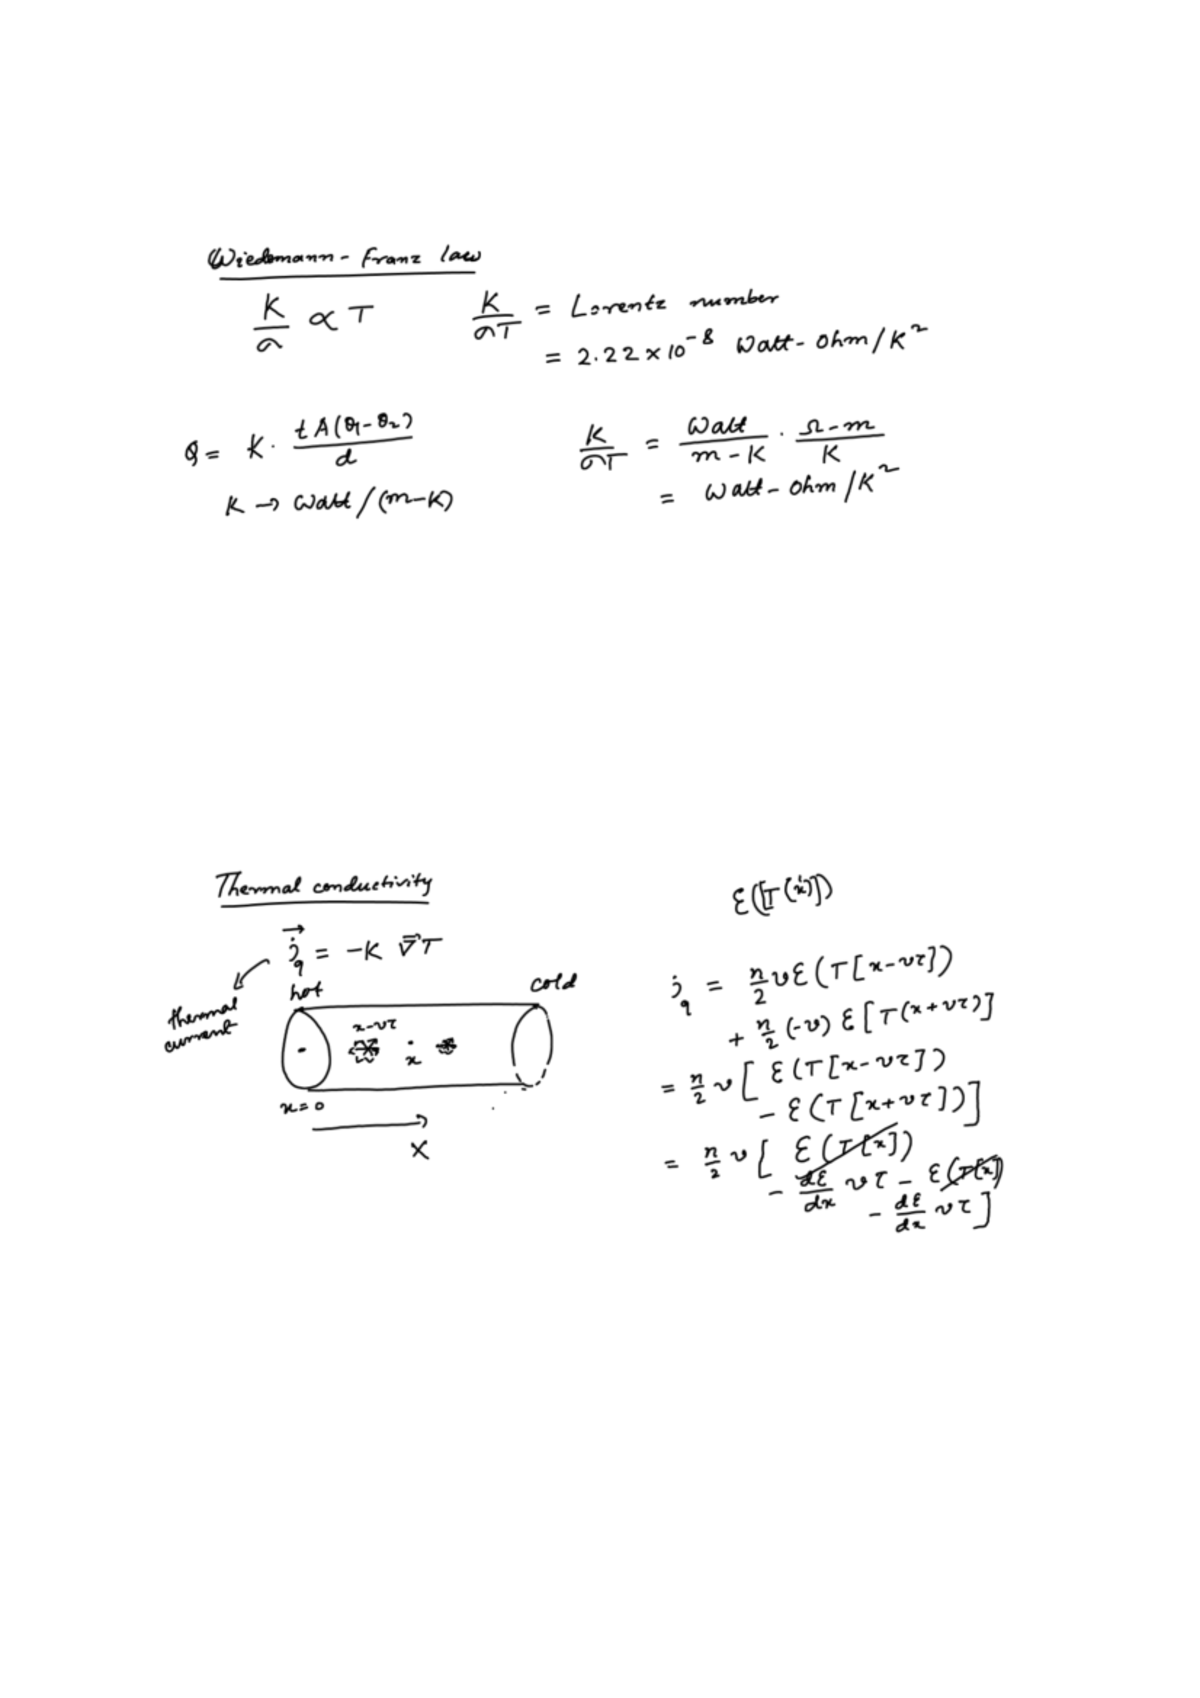 Wiedemann - Franz law
K/σ ∝ T
K/σT = Lorentz number
= 2.22 × 10⁻⁸ Watt - ohm / K²
Q = K · t A (θ₁ - θ₂) / d
K → Watt / (m - K)
K/σT = Watt / m - K · Ω - m / K
= Watt - ohm / K²
Thermal conductivity
j⃗q = -K ∇⃗T
thermal
current
hot
cold
x - vτ
x
x = 0
X
ε([T(x)])
jq = n/2 v ε(T[x - vτ])
+ n/2 (-v) ε[T(x + vτ)]
= n/2 v [ ε(T[x - vτ])
- ε(T[x + vτ]) ]
= n/2 v [ ε(T[x])
- dε/dx vτ - ε(T[x])
- dε/dx vτ ]